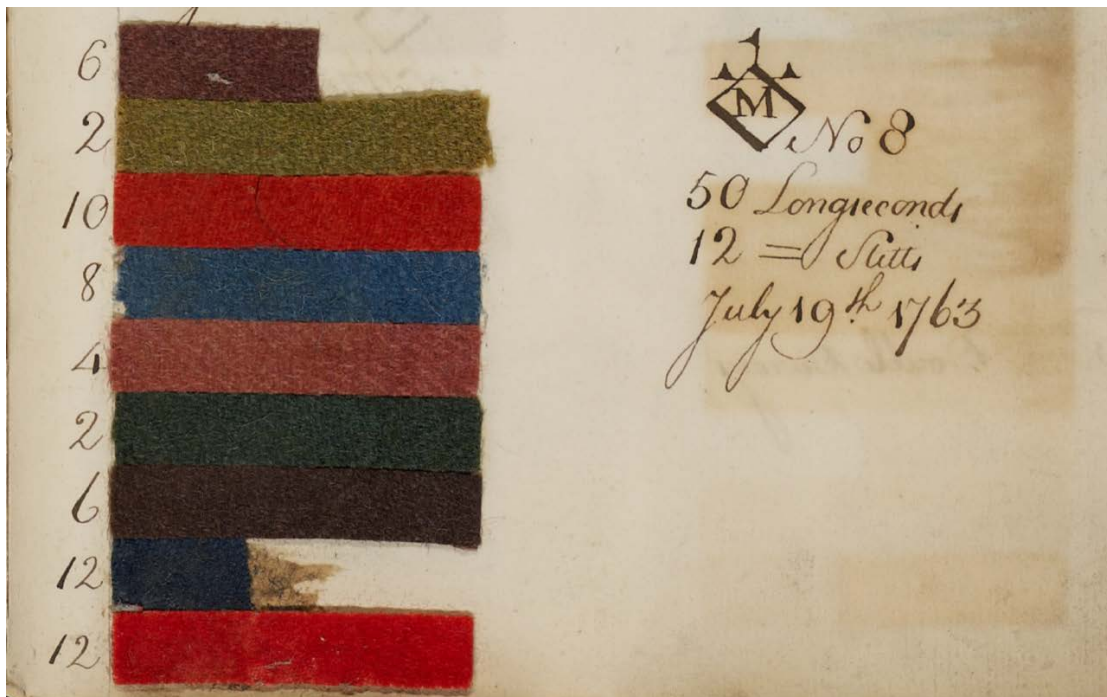 6
2
10
8
4
2
6
12
12
M
No 8
50 Longseconds
12 = Stitts
July 19th 1763